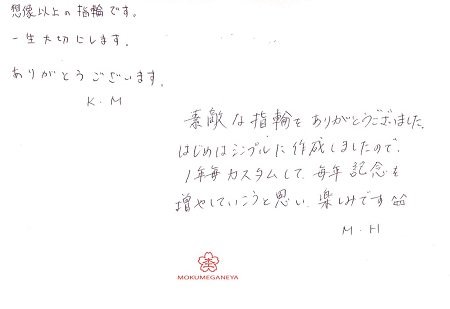 想像以上の指輪です。
一生大切にします。
ありがとうございます。
K.M
素敵な指輪をありがとうございました。
はじめはシンプルに作成しましたので、
1年毎カスタムして、毎年記念を
増やしていこうと思い、楽しみです
M.H
MOKUMEGANEYA